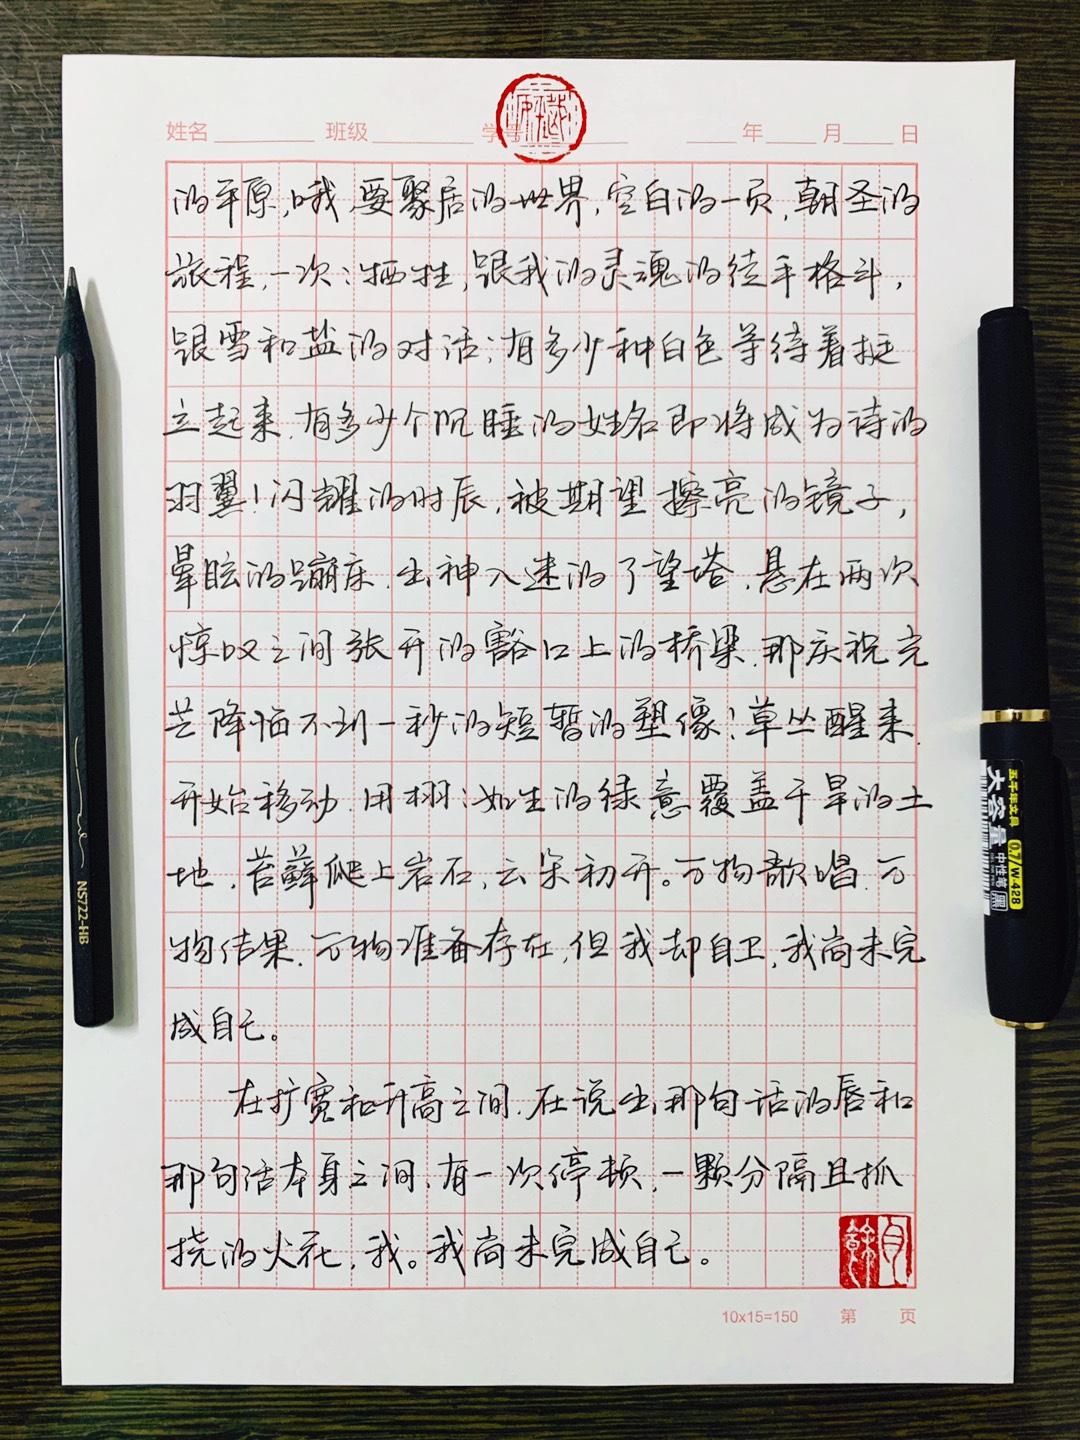 姓名 班级 学号 年 月 日
的平原,哦,要聚居的世界,空白的一页,朝圣的
旅程,一次次牺牲,跟我的灵魂的徒手格斗,
跟雪和盐的对话;有多少种白色等待着挺
立起来,有多少个沉睡的姓名即将成为诗的
羽翼!闪耀的时辰,被期望擦亮的镜子,
晕眩的蹦床,出神入迷的了望塔,悬在两次
惊叹之间张开的豁口上的桥梁,那庆祝光
芒降临不到一秒的短暂的塑像!草丛醒来,
开始移动,用栩栩如生的绿意覆盖干旱的土
地,苔藓爬上岩石,云朵初开。万物歌唱,万
物结果,万物准备存在,但我却自卫,我尚未完
成自己。
在扩宽和升高之间,在说出那句话的唇和
那句话本身之间,有一次停顿,一颗分隔且抓
挠的火花,我。我尚未完成自己。
10x15=150 第 页
NS722-HB
五千年文具
大容量
中性笔
黑
0.7/W-428